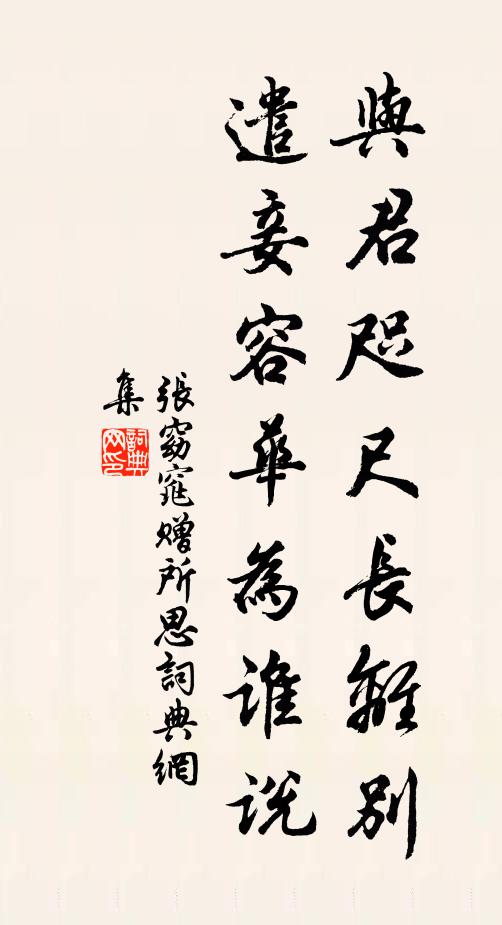 與君咫尺長離別
遣妾容華為誰說
張窈窕贈所思詞典網
集
詞典網印